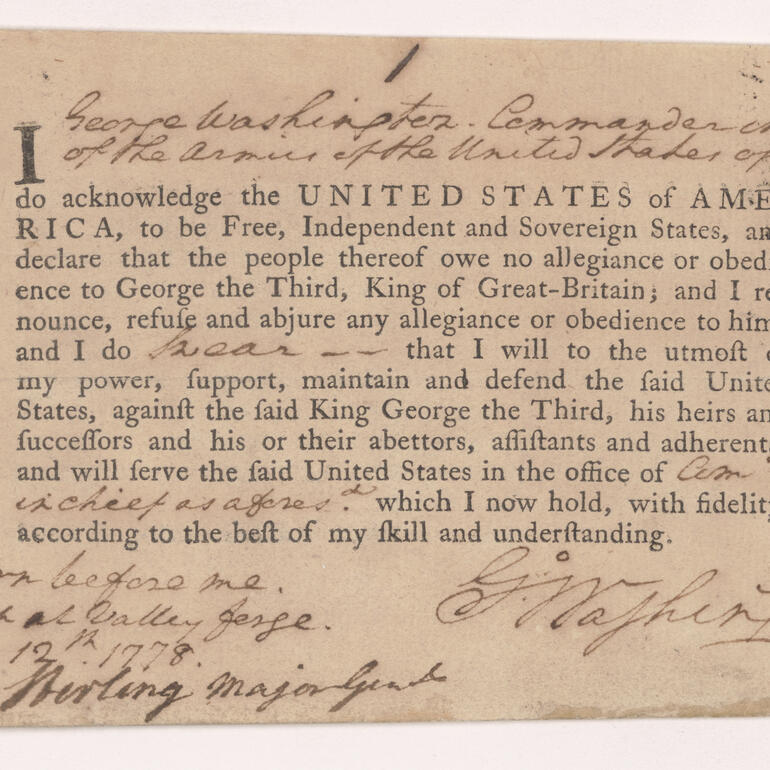 George Washington Commander in
of the Armies of the United States of
I
do acknowledge the UNITED STATES of AME
RICA, to be Free, Independent and Sovereign States, an
declare that the people thereof owe no allegiance or obed
ence to George the Third, King of Great-Britain; and I re
nounce, refuſe and abjure any allegiance or obedience to him
and I do Swear —— that I will to the utmoſt o
my power, ſupport, maintain and defend the ſaid Unite
States, againſt the ſaid King George the Third, his heirs an
ſucceſſors and his or their abettors, aſſiſtants and adherents
and will ſerve the ſaid United States in the office of Com
in chief as afores.d which I now hold, with fidelity
according to the beſt of my ſkill and underſtanding.
rn before me.
at Valley forge.
12th 1778.
Go Washing
Stirling Major Genl